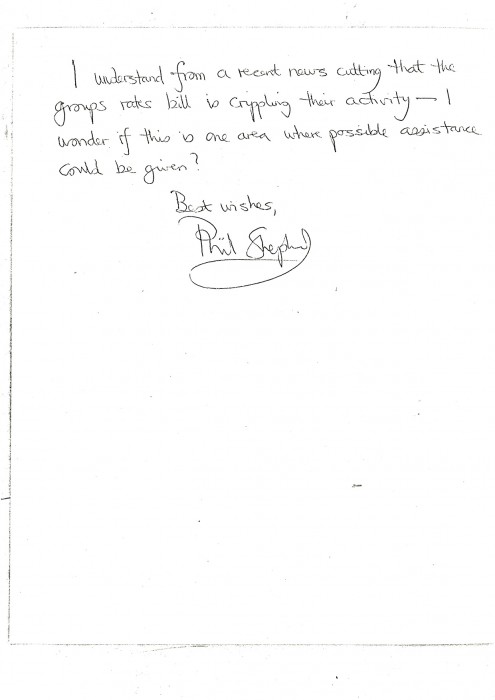 I understand from a recent news cutting that the
groups rates bill is crippling their activity — I
wonder if this is one area where possible assistance
could be given?
Best wishes,
Phil Shepherd